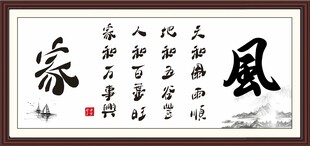 風
天和風雨順
地和五谷豐
人和百業旺
家和万事興
家